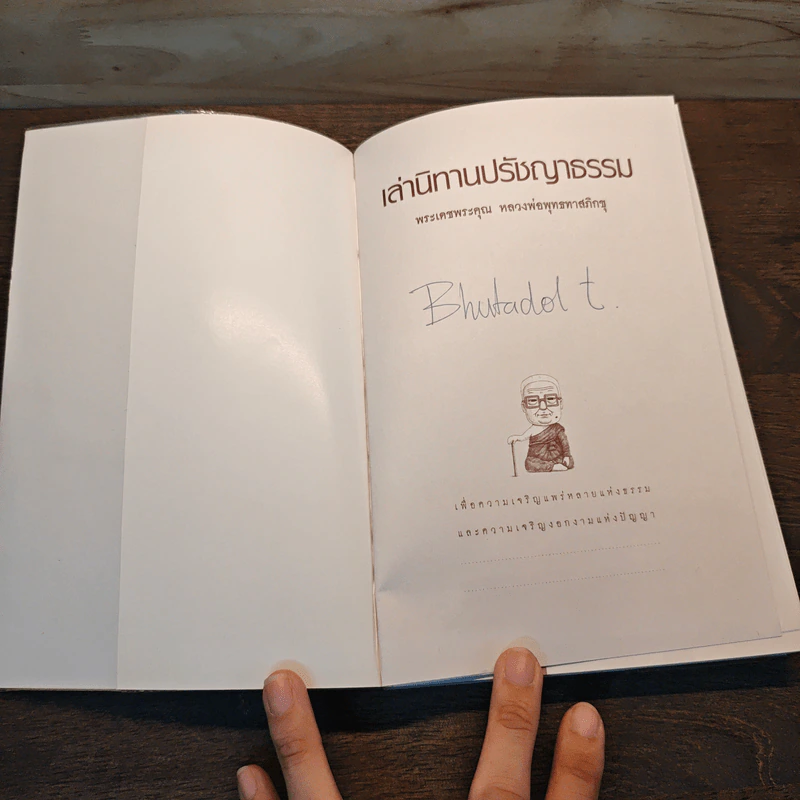 เล่านิทานปรัชญาธรรม
พระเดชพระคุณ หลวงพ่อพุทธทาสภิกขุ
Bhutadol t.
เพื่อความเจริญแพร่หลายแห่งธรรม
และความเจริญงอกงามแห่งปัญญา